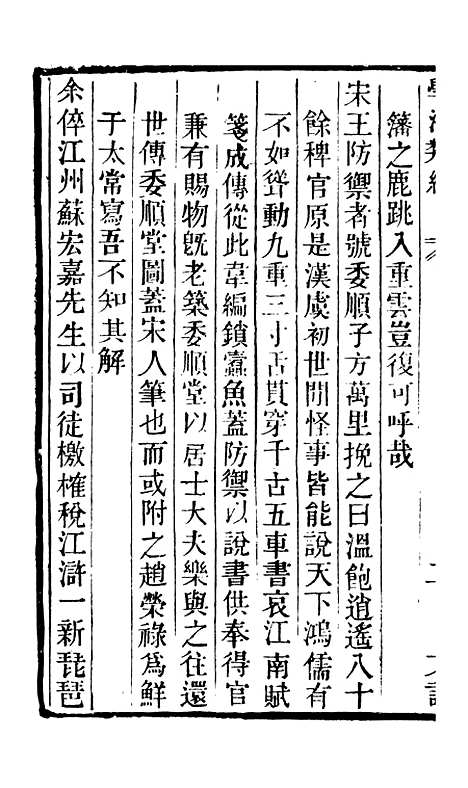 藩之鹿跳入重雲豈復可呼哉
宋王防禦者號委順子方萬里挽之曰溫飽逍遙八十
餘稗官原是漢虞初世間怪事皆能說天下鴻儒有
不如聳動九重三寸舌貫穿千古五車書哀江南賦
箋成傳從此韋編鎖蠹魚蓋防禦以說書供奉得官
兼有賜物既老築委順堂以居士大夫樂與之往還
世傳委順堂圖蓋宋人筆也而或附之趙榮祿為鮮
于太常寫吾不知其解
余倅江州蘇宏嘉先生以司徒檄榷稅江滸一新琵琶